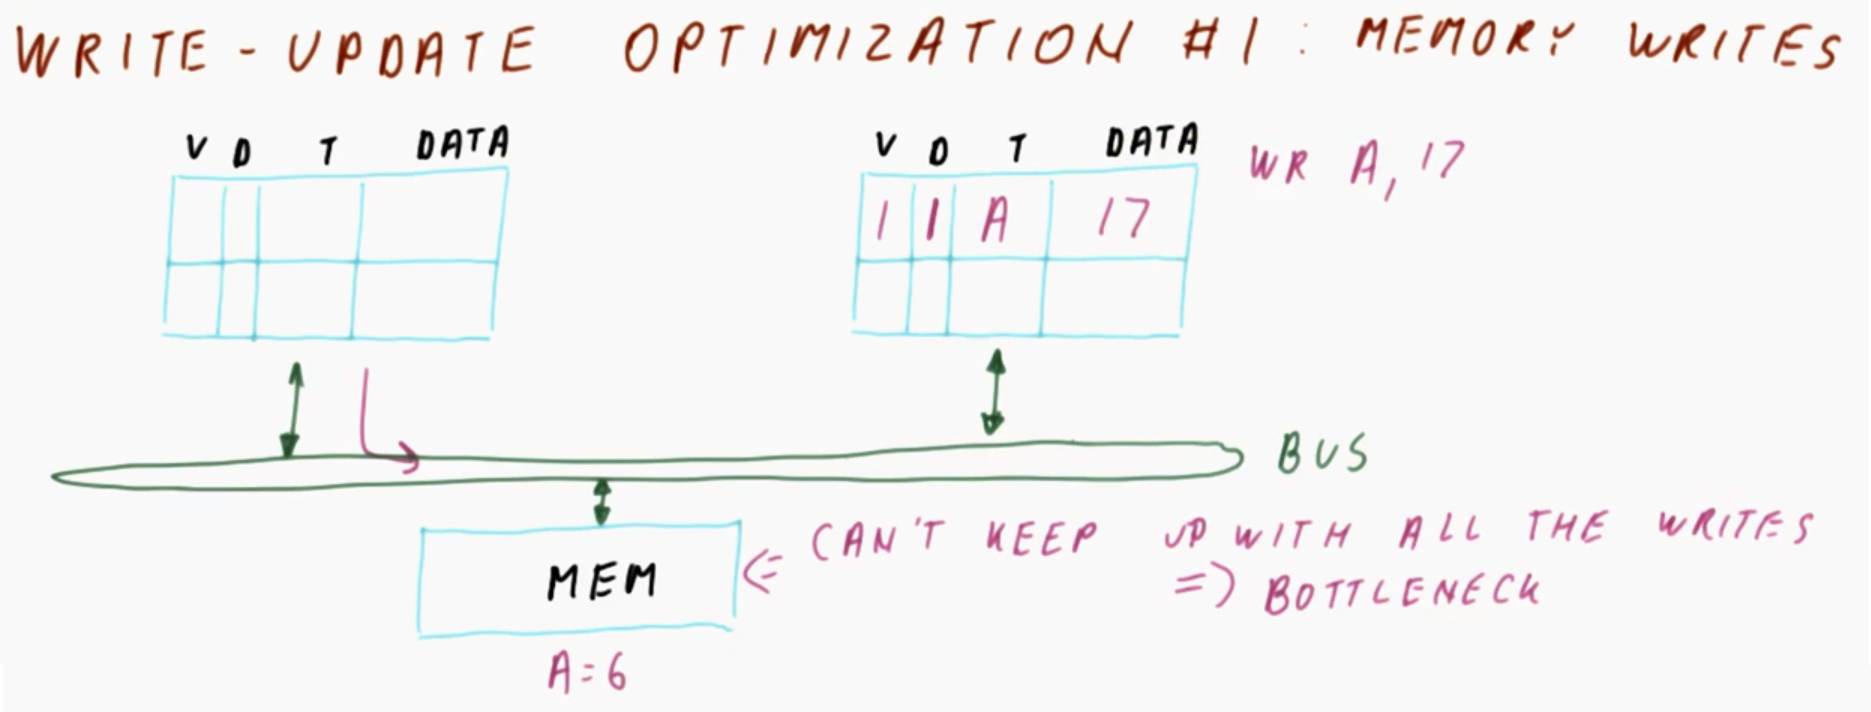 WRITE - UPDATE OPTIMIZATION #1 : MEMORY WRITES
V D T DATA
V D T DATA
WR A, 17
1 1 A 17
BUS
MEM
<= CAN'T KEEP UP WITH ALL THE WRITES
=> BOTTLENECK
A=6